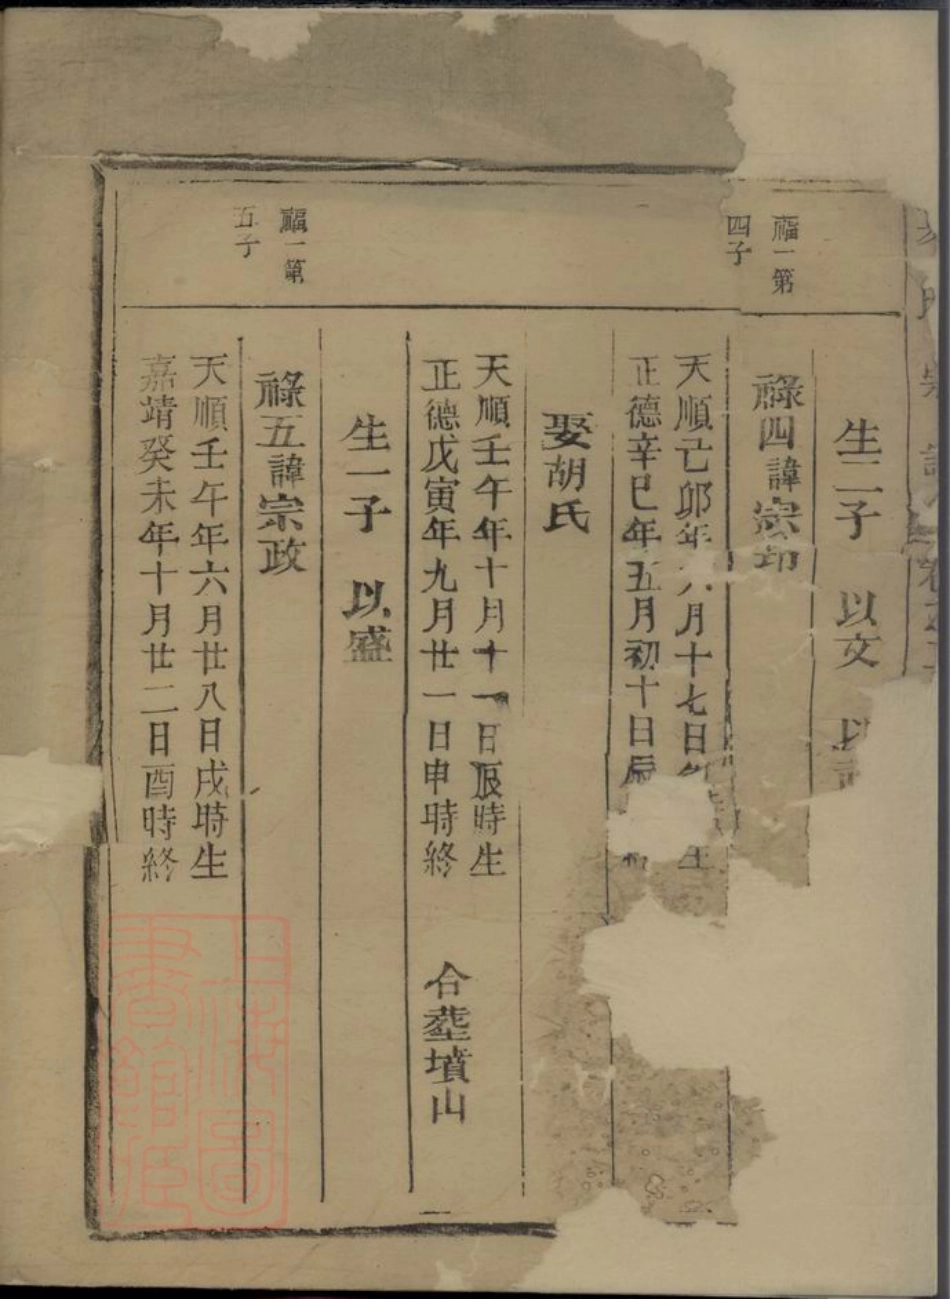 生二子 以文 以
福一第
四子
祿四諱宗
天順己卯年六月十七日生
正德辛巳年五月初十日辰
娶胡氏
天順壬午年十月十一日辰時生
正德戊寅年九月廿一日申時終
合塟墳山
生一子 以盛
福一第
五子
祿五諱宗政
天順壬午年六月廿八日戌時生
嘉靖癸未年十月廿二日酉時終
上海圖
書館藏